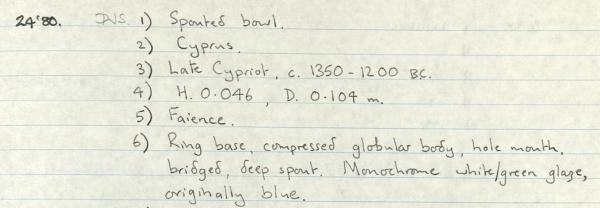 24'80. JNS. 1) Spouted bowl.
2) Cyprus.
3) Late Cypriot, c. 1350-1200 BC.
4) H. 0.046, D. 0.104 m.
5) Faience.
6) Ring base, compressed globular body, hole mouth,
bridged, deep spout. Monochrome white/green glaze,
originally blue.